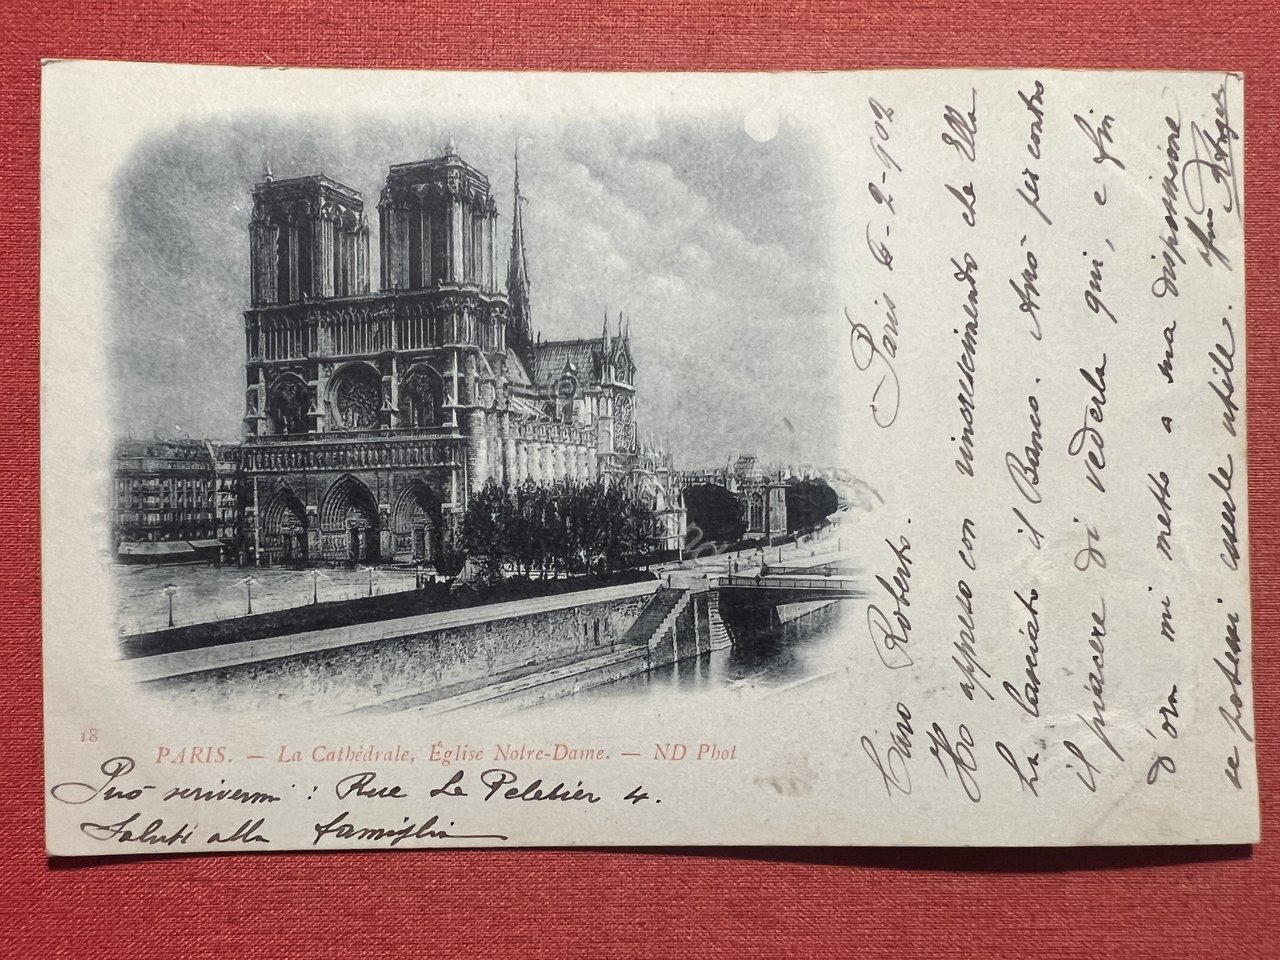 18
PARIS. — La Cathédrale, Église Notre-Dame. — ND Phot
Può scrivermi : Rue Le Peletier 4.
Saluti alla famiglia
Paris 6-2-902
Caro Roberto.
Ho appreso con rincrescimento che Ella
ha lasciato il Banco. Avrò per contro
il piacere di vederla qui, e fin
d'ora mi metto a sua disposizione
se potessi esserle utile. Suo